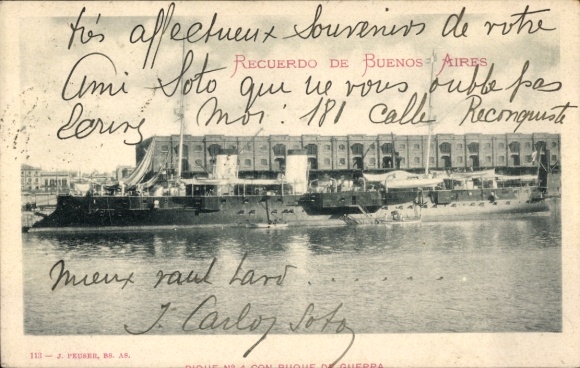 très affectueux Souvenirs de votre
RECUERDO DE BUENOS AIRES
Ami Soto qui ne vous oublie pas
Ecrivez Moi: 181 calle Reconquista
Mieux vaut tard.......
J. Carlos Soto
113 — J. PEUSER, BS. AS.
DIQUE Nº 4 CON BUQUE DE GUERRA